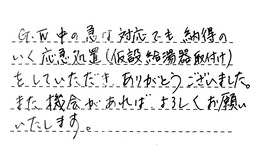 G.W.中の急な対応でも納得の
いく応急処置(仮設給湯器取付け)
をしていただきありがとうございました。
また機会があればよろしくお願い
いたします。